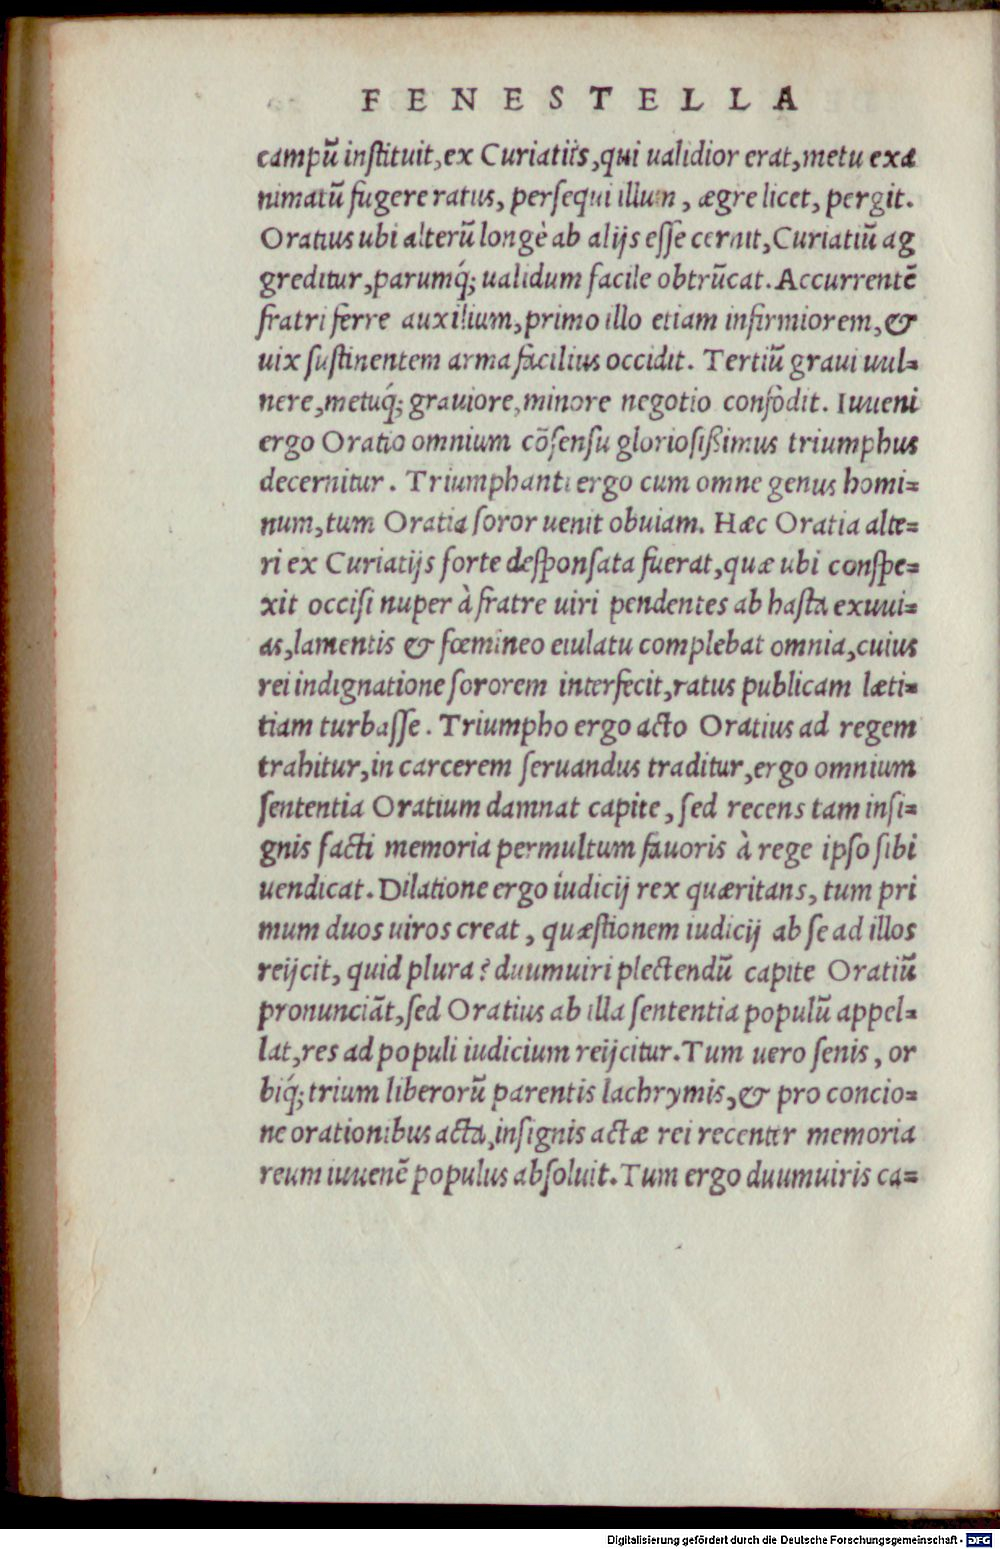 FENESTELLA
campū instituit, ex Curiatiis, qui ualidior erat, metu exa
nimatū fugere ratus, persequi illum, ægre licet, pergit.
Oratius ubi alterū longè ab alijs esse cernit, Curiatiū ag
greditur, parumq́; ualidum facile obtrūcat. Accurrentē
fratri ferre auxilium, primo illo etiam infirmiorem, &
uix sustinentem arma facilius occidit. Tertiū graui uul=
nere, metuq́; grauiore, minore negotio confòdit. Iuueni
ergo Oratio omnium cōsensu gloriosißimus triumphus
decernitur. Triumphanti ergo cum omne genus homi=
num, tum Oratia soror uenit obuiam. Hæc Oratia alte=
ri ex Curiatijs forte desponsata fuerat, quæ ubi conspe=
xit occisi nuper à fratre uiri pendentes ab hasta exuui=
as, lamentis & fœmineo eiulatu complebat omnia, cuius
rei indignatione sororem interfecit, ratus publicam læti=
tiam turbasse. Triumpho ergo acto Oratius ad regem
trahitur, in carcerem seruandus traditur, ergo omnium
sententia Oratium damnat capite, sed recens tam insi=
gnis facti memoria permultum fauoris à rege ipso sibi
uendicat. Dilatione ergo iudicij rex quæritans, tum pri
mum duos uiros creat, quæstionem iudicij ab se ad illos
reijcit, quid plura? duumuiri plectendū capite Oratiū
pronunciāt, sed Oratius ab illa sententia populū appel=
lat, res ad populi iudicium reijcitur. Tum uero senis, or
biq́; trium liberorū parentis lachrymis, & pro concio=
ne orationibus acta, insignis actæ rei recenter memoria
reum iuuenē populus absoluit. Tum ergo duumuiris ca=
Digitalisierung gefördert durch die Deutsche Forschungsgemeinschaft - DFG